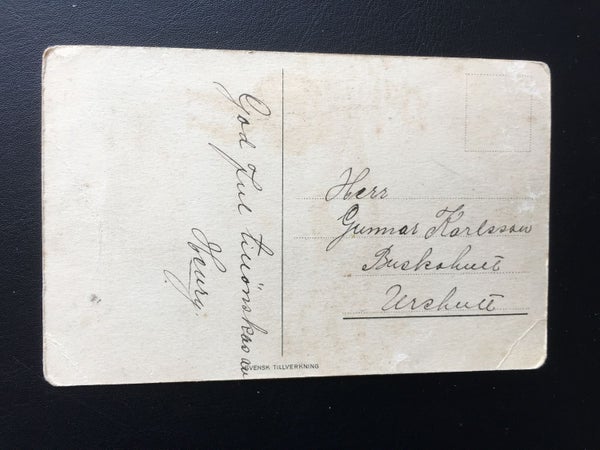 God Jul tillönskas av
Henry.
Herr
Gunnar Karlsson
Buskahult
Urshult
SVENSK TILLVERKNING